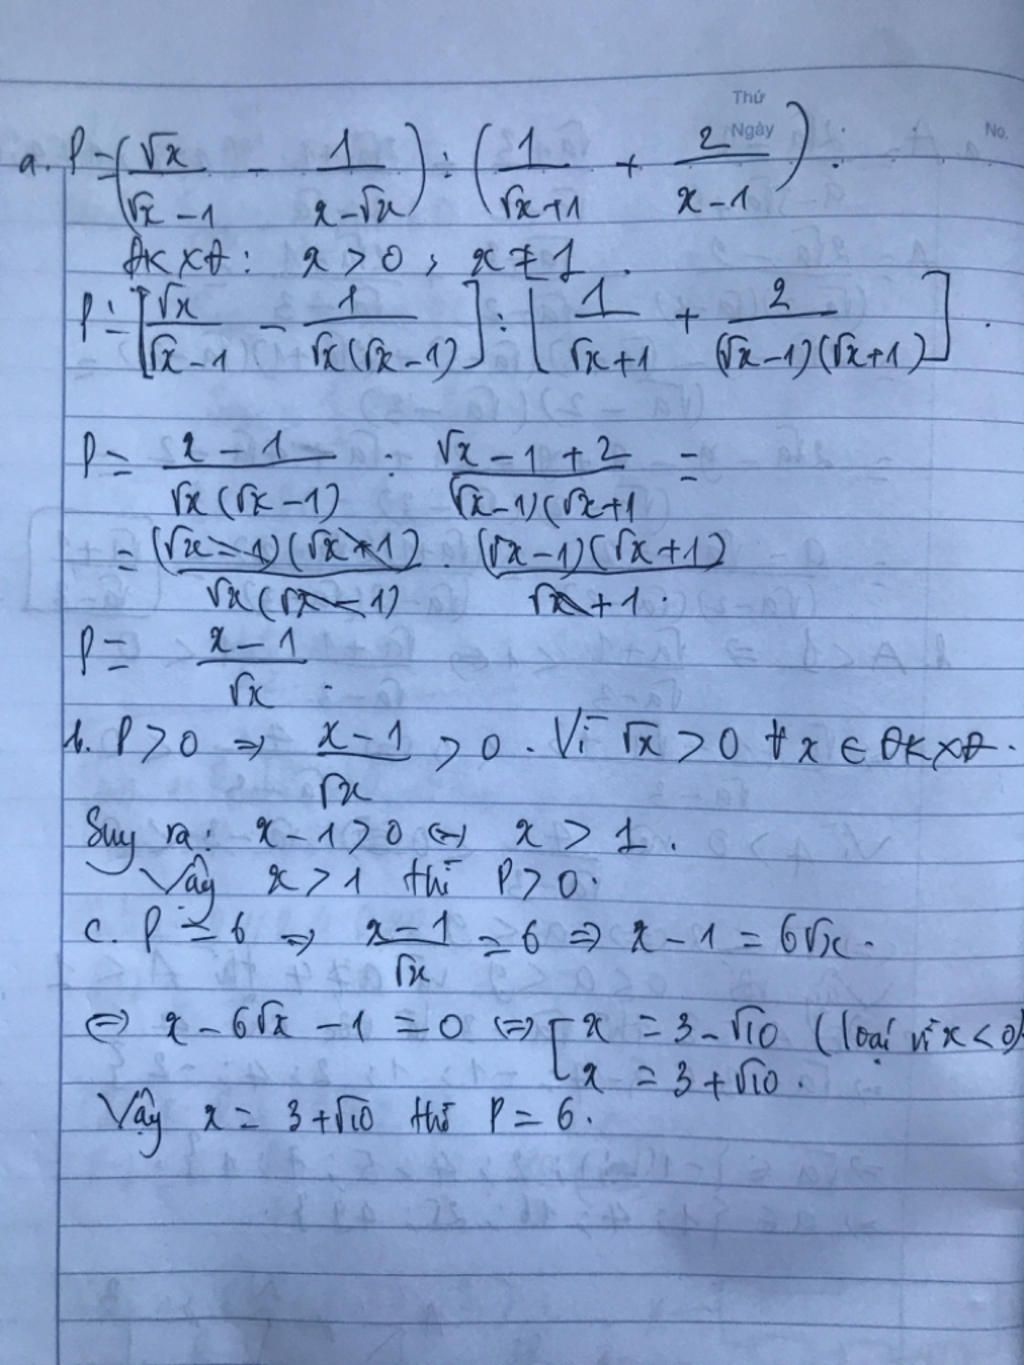 Thứ
Ngày
No.
a. P = (√x/(√x - 1) - 1/(x - √x)) : (1/(√x + 1) + 2/(x - 1)) :
ĐKXĐ : x > 0 ; x ≠ 1 .
P = [√x/(√x - 1) - 1/(√x(√x - 1))] : [1/(√x + 1) + 2/((√x - 1)(√x + 1))] .
P = (x - 1)/(√x(√x - 1)) : (√x - 1 + 2)/((√x - 1)(√x + 1) =
= ((√x - 1)(√x + 1))/(√x(√x - 1)) . ((√x - 1)(√x + 1))/(√x + 1) .
P = (x - 1)/√x .
b. P > 0 ⇒ (x - 1)/√x > 0 . Vì √x > 0 ∀ x ∈ ĐKXĐ .
Suy ra : x - 1 > 0 ⇔ x > 1 .
Vậy x > 1 thì P > 0 .
c. P = 6 ⇒ (x - 1)/√x = 6 ⇒ x - 1 = 6√x .
⇔ x - 6√x - 1 = 0 ⇔ [ x = 3 - √10 (loại vì x < 0)
x = 3 + √10 .
Vậy x = 3 + √10 thì P = 6 .